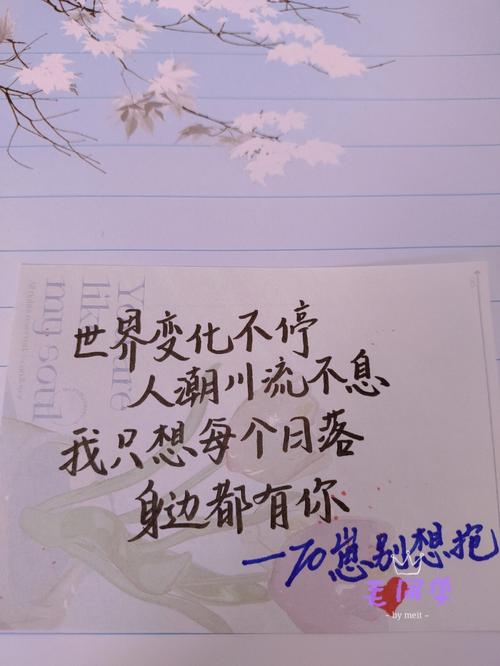 世界变化不停
人潮川流不息
我只想每个日落
身边都有你
一70崽别想抱
- by meit -
You are
like
my soul